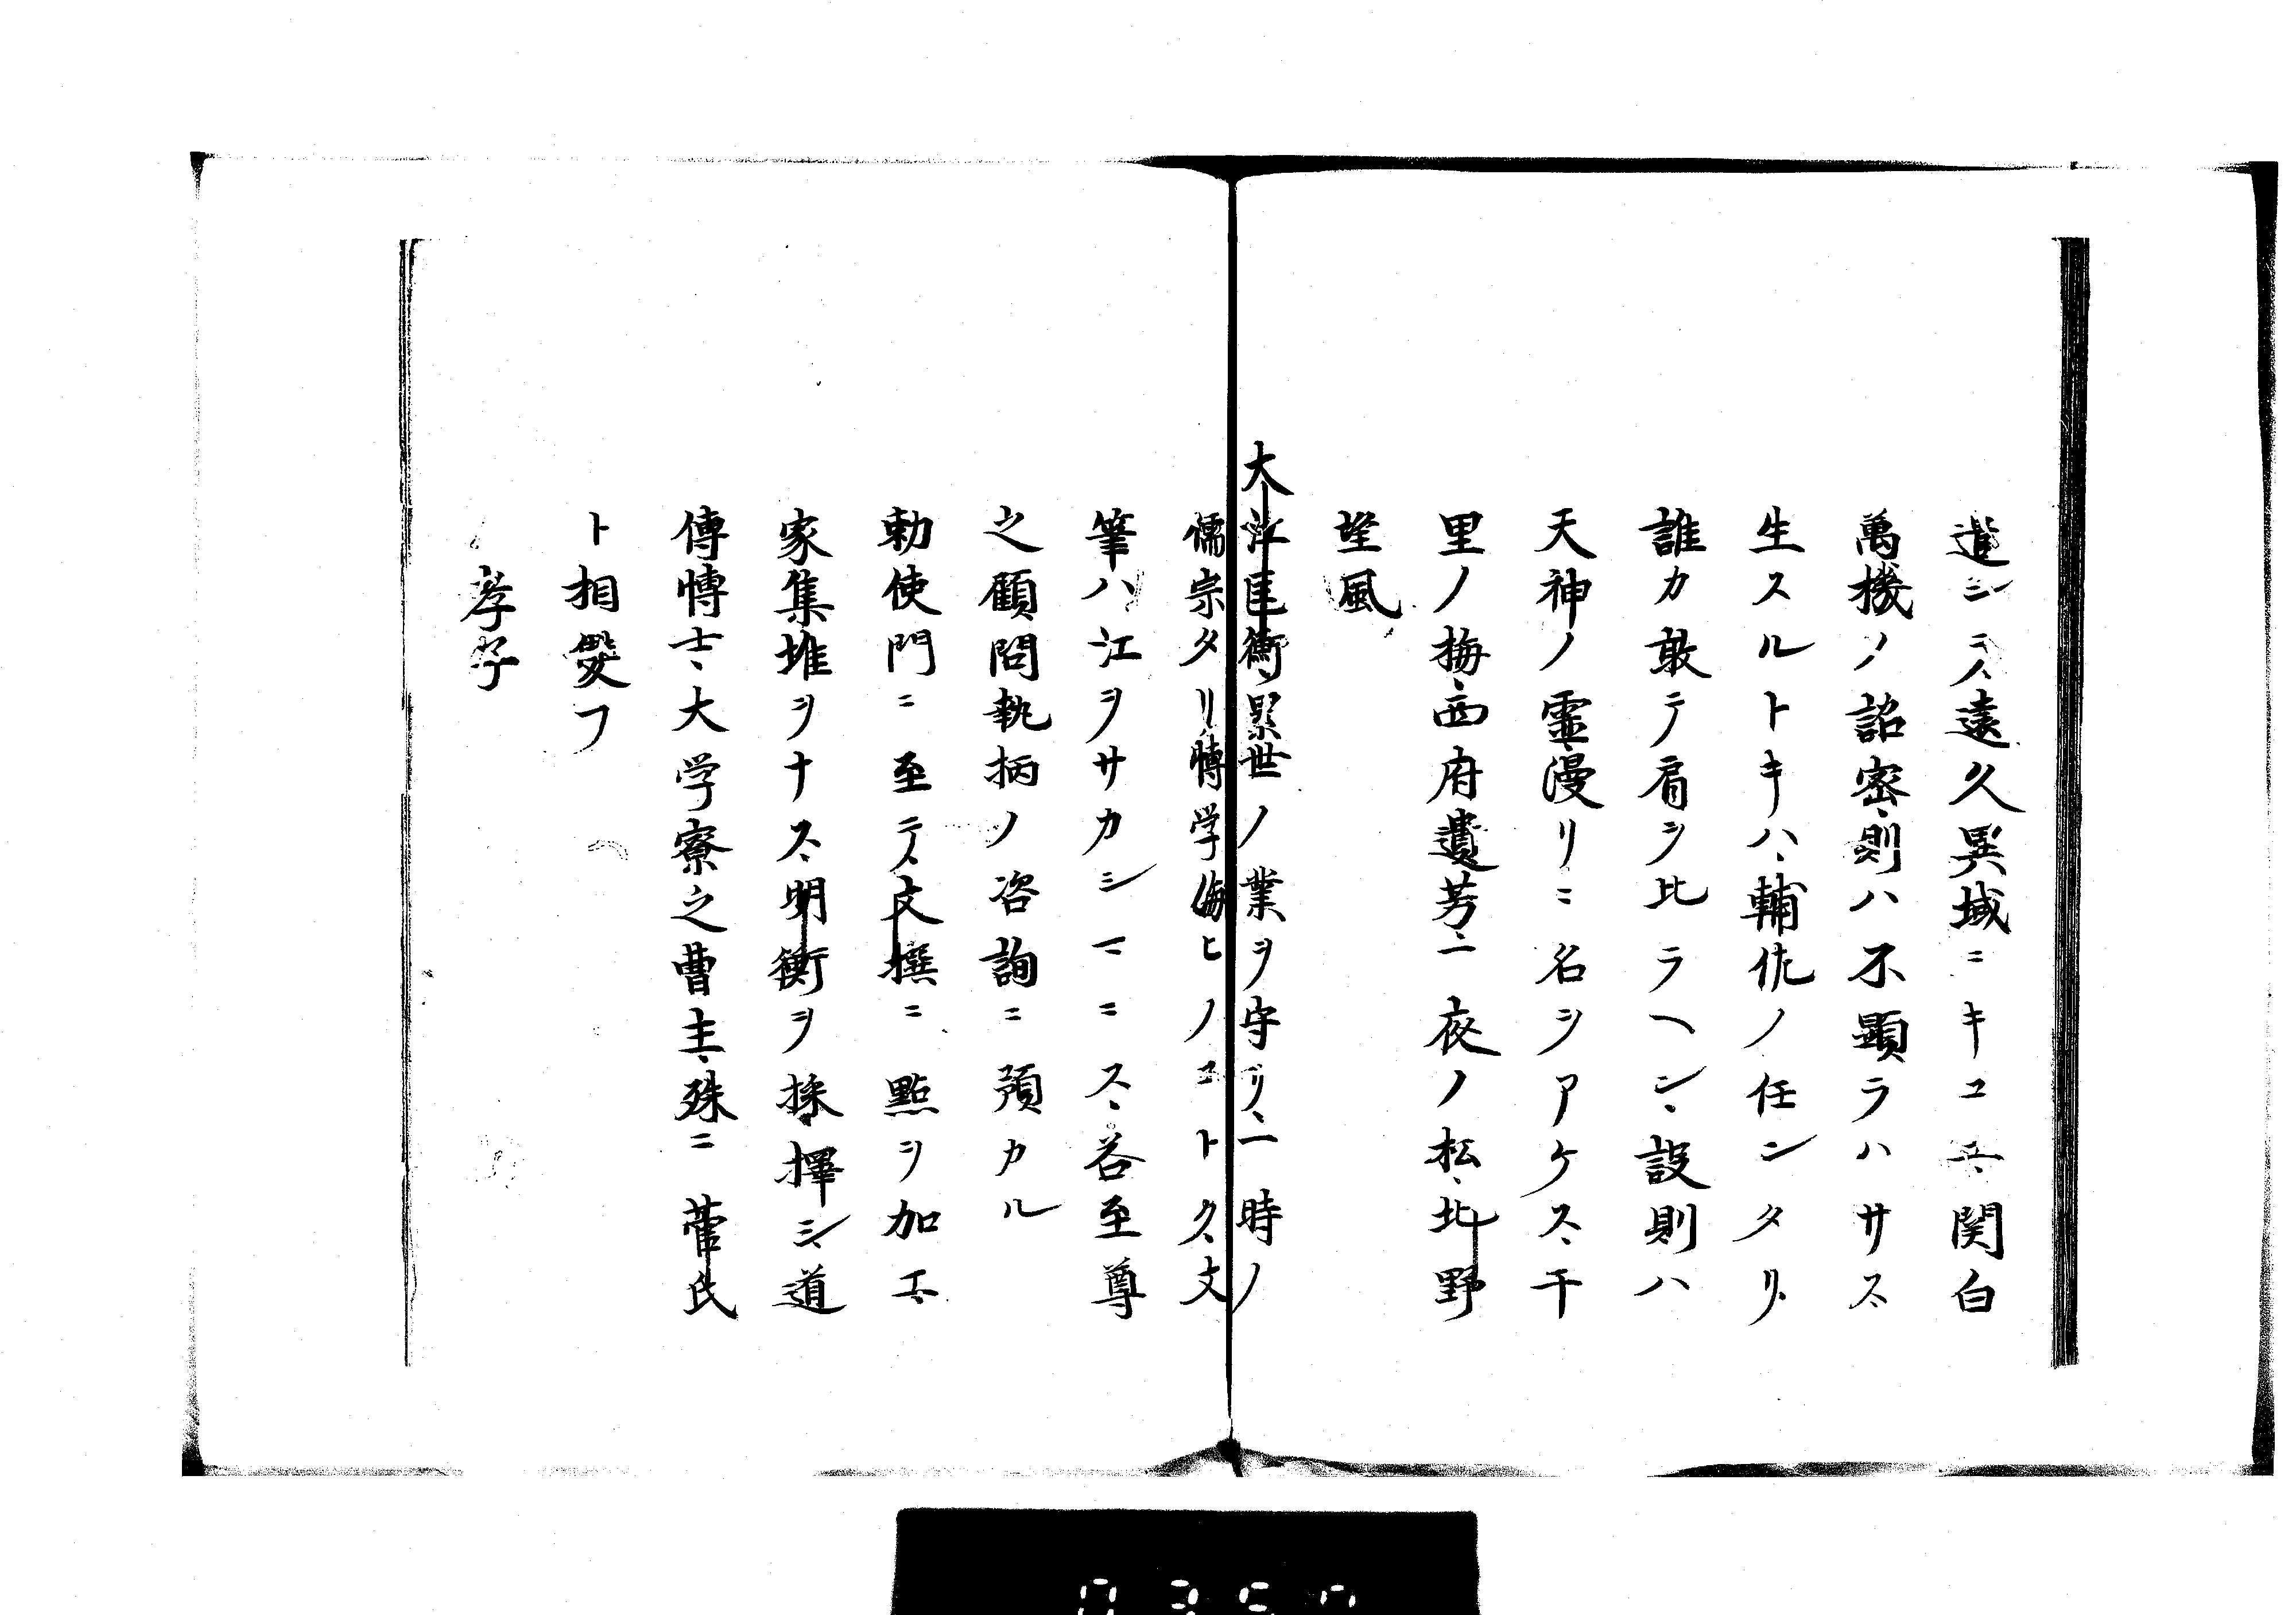 道シニス遠久異域ニキコユ、関白
萬機ノ詔密、則ハ不顕ラハサス、
生スルトキハ、輔佐ノ任ンタリ、
誰カ敢テ肩シ比ラヘン、設則ハ
天神ノ霊漫リニ名シアケス、干
里ノ梅、西府遺芳、一夜ノ松、北野
垂風
大江匡衡、累世ノ業ヲ守リ、一時ノ
儒宗タリ、博学海ヒノコトク、文
筆ハ江ヲサカシマニス、答至尊
之顧問執柄ノ咨詢ニ預カル
勅使門ニ至テ、文撰ニ點ヲ加エ、
家集堆ヲナス、明衡ヲ採擇シ、道
傳博士、大学寮之曹主、殊ニ菅氏
ト相雙フ
孝子